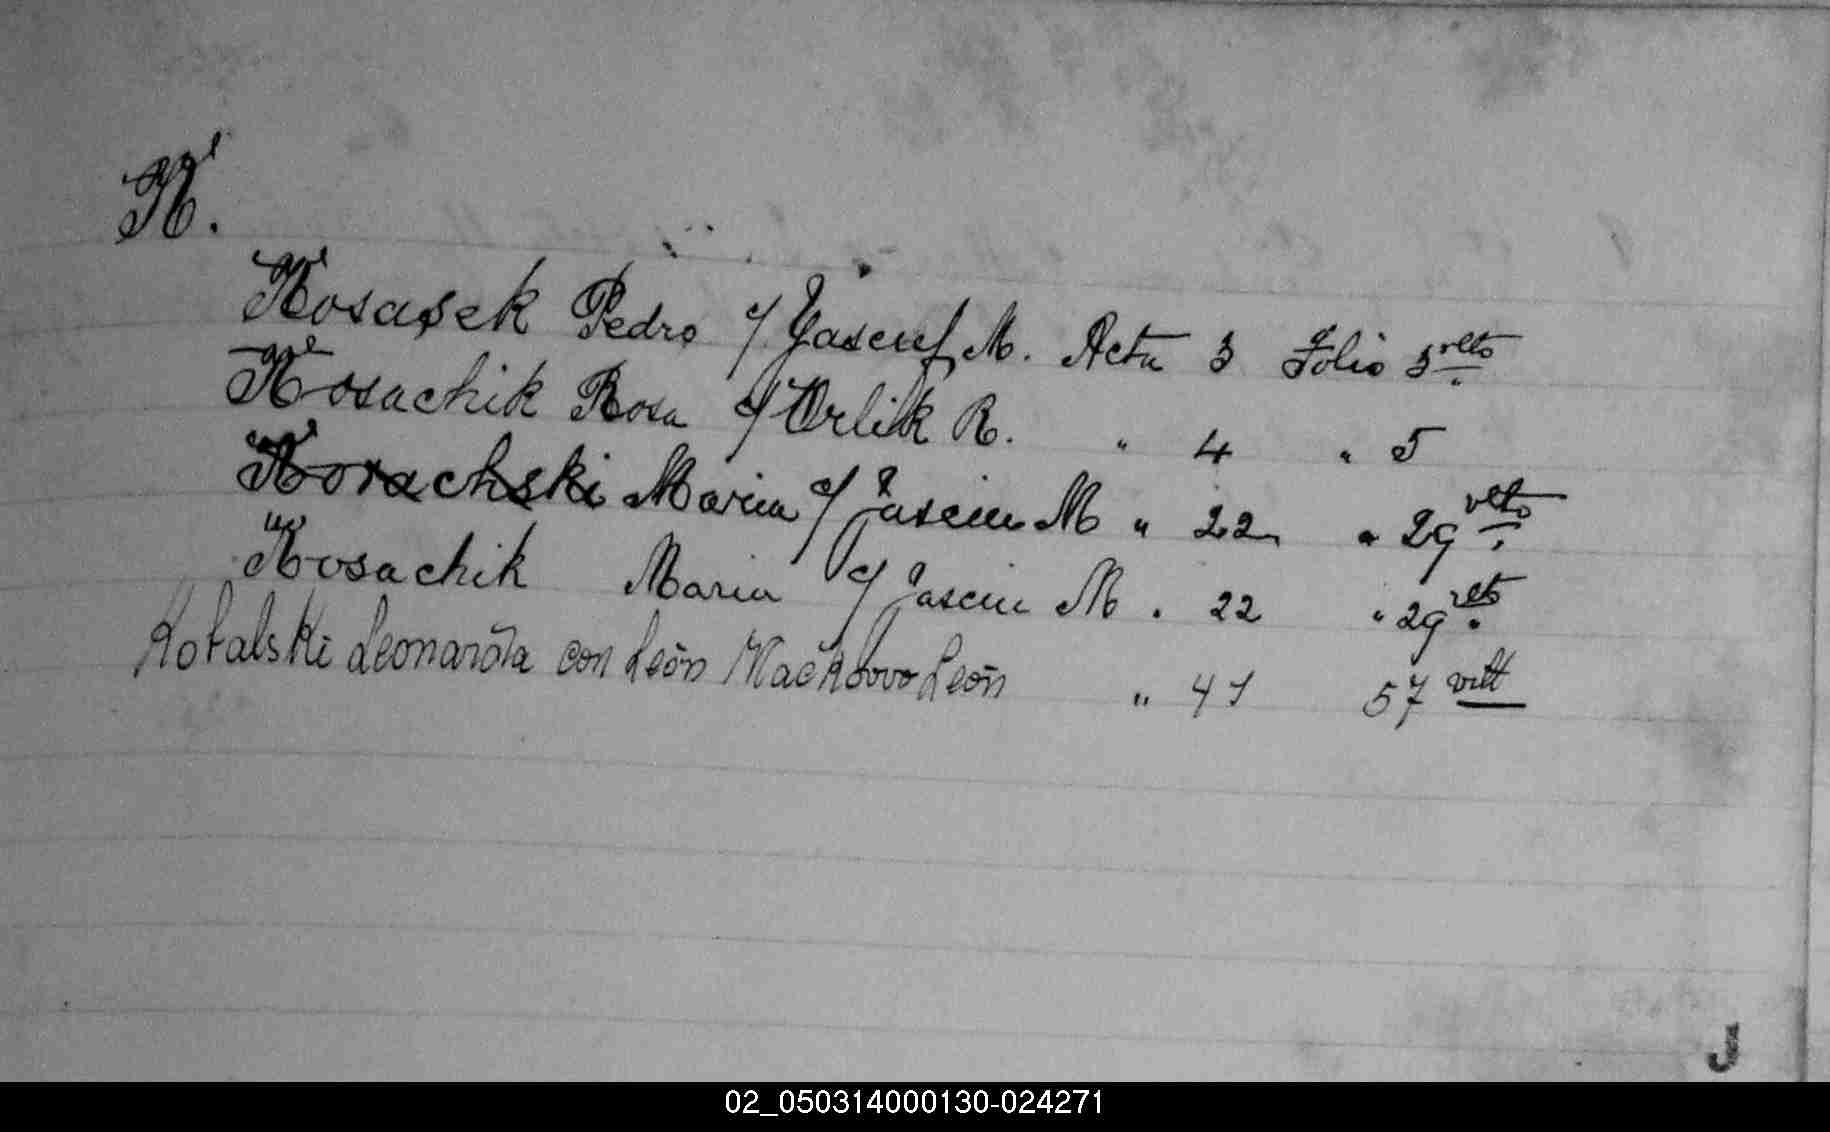 K.
Kosasek Pedro c/ Yaseuf, M. Acta 3 Folio 3 vlto
Kosachik Rosa c/ Orlik R. " 4 " 5
Kosachski Maria c/ Jasciu M " 22 " 29 vlto
Kosachik Maria c/ Jasciu M . 22 " 29 vlto
Kobalski Leonarda con León Mackovvo León " 41 57 vult
J
02_050314000130-024271